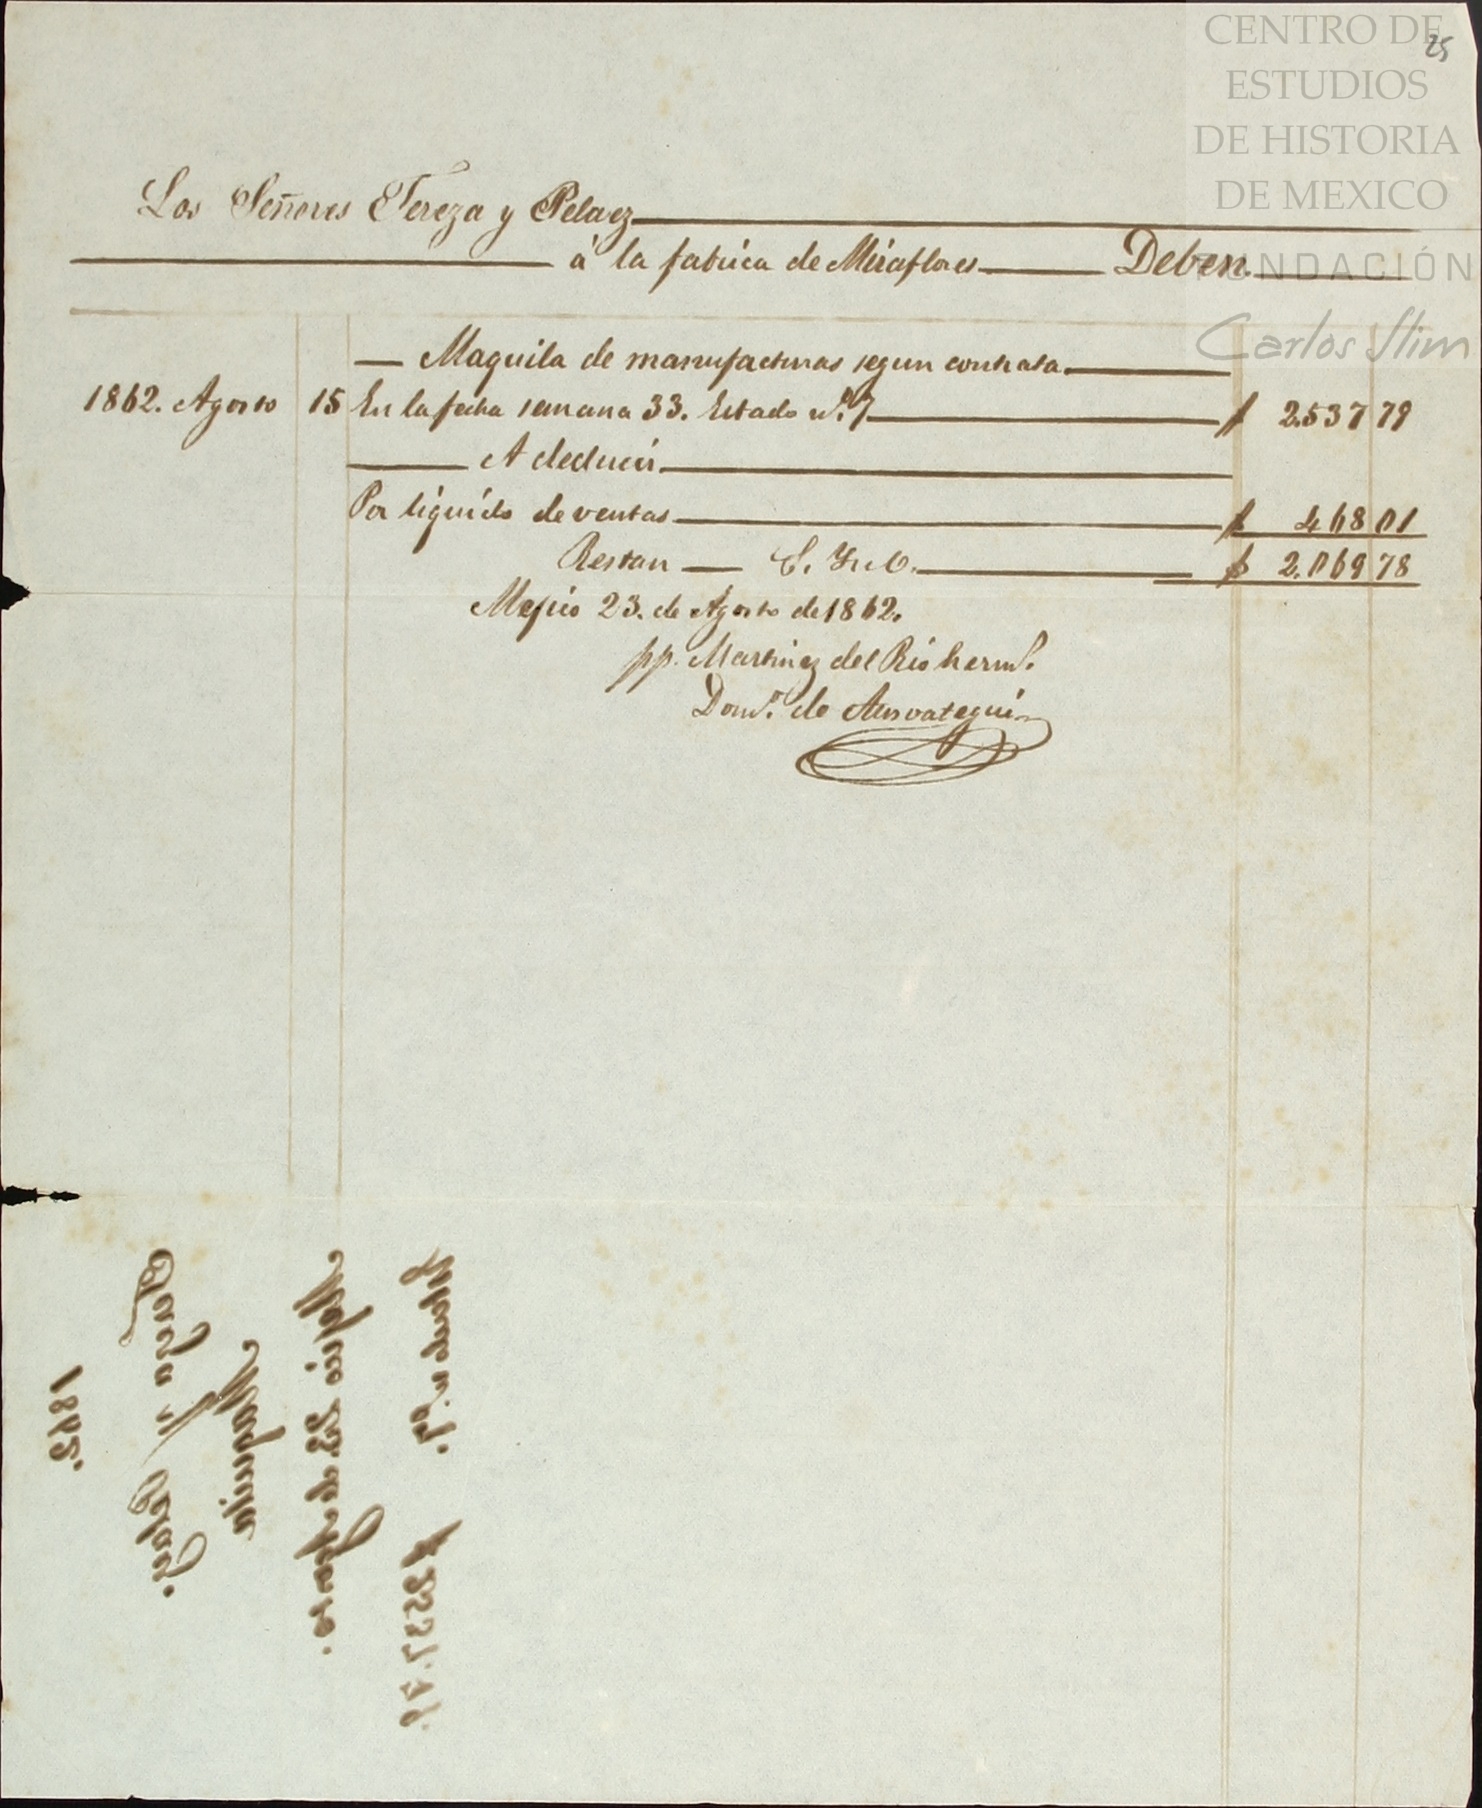 25
CENTRO DE
ESTUDIOS
DE HISTORIA
DE MEXICO
FUNDACIÓN
Carlos Slim
Los Señores Tereza y Pelaez
á la fabrica de Miraflores Deben.
Maquila de manufacturas segun contrata.
1862. Agosto 15 En la fecha semana 33. Estado nº. 7 $ 2.537 79
A deducir
Por liquido de ventas $ 468 01
Restan $ 2.069 78
Mejico 23. de Agosto de 1862.
pp. Martinez del Rio hermˢ.
Domº. de Ansoategui
1862.
Mejico 23 de Agosto.